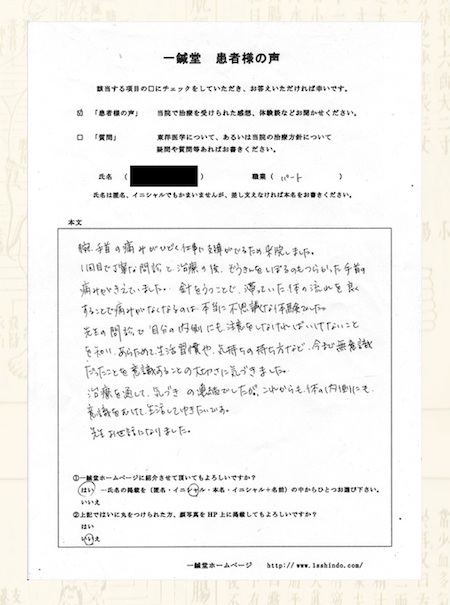 一鍼堂 患者様の声
該当する項目の□にチェックをしていただき、お答えいただければ幸いです。
☑ 「患者様の声」 当院で治療を受けられた感想、体験談などお聞かせください。
□ 「質問」 東洋医学について、あるいは当院の治療方針について
疑問や質問等あればお書きください。
氏名 ( ) 職業 ( パート )
氏名は匿名、イニシャルでもかまいませんが、差し支えなければ本名をお書きください。
本文
腕、手首の痛みがひどく、仕事に支障がでるため来院しました。
1回目で丁寧な問診と治療の後、ぞうきんをしぼるのもつらかった手首の
痛みがきえていました。針をうつことで、滞っていた体の流れを良く
することで痛みがなくなるのは、本当に不思議な体験でした。
先生の問診で自分の内側にも注意をしなければいけないこと
を知り、あらためて生活習慣や、気持ちの持ち方など、今まで無意識
だったことを意識することの大切さに気づきました。
治療を通して、気づきの連続でしたが、これからも、体の内側にも
意識をむけて生活してゆきたいです。
先生お世話になりました。
①一鍼堂ホームページに紹介させて頂いてもよろしいですか？
はい －氏名の掲載を（匿名・イニシャル・本名・イニシャル＋名前）の中からひとつお選び下さい。
いいえ
②上記ではいに丸をつけられた方、顔写真を HP 上に掲載してもよろしいですか？
はい
いいえ
一鍼堂ホームページ http://www.1sshindo.com/